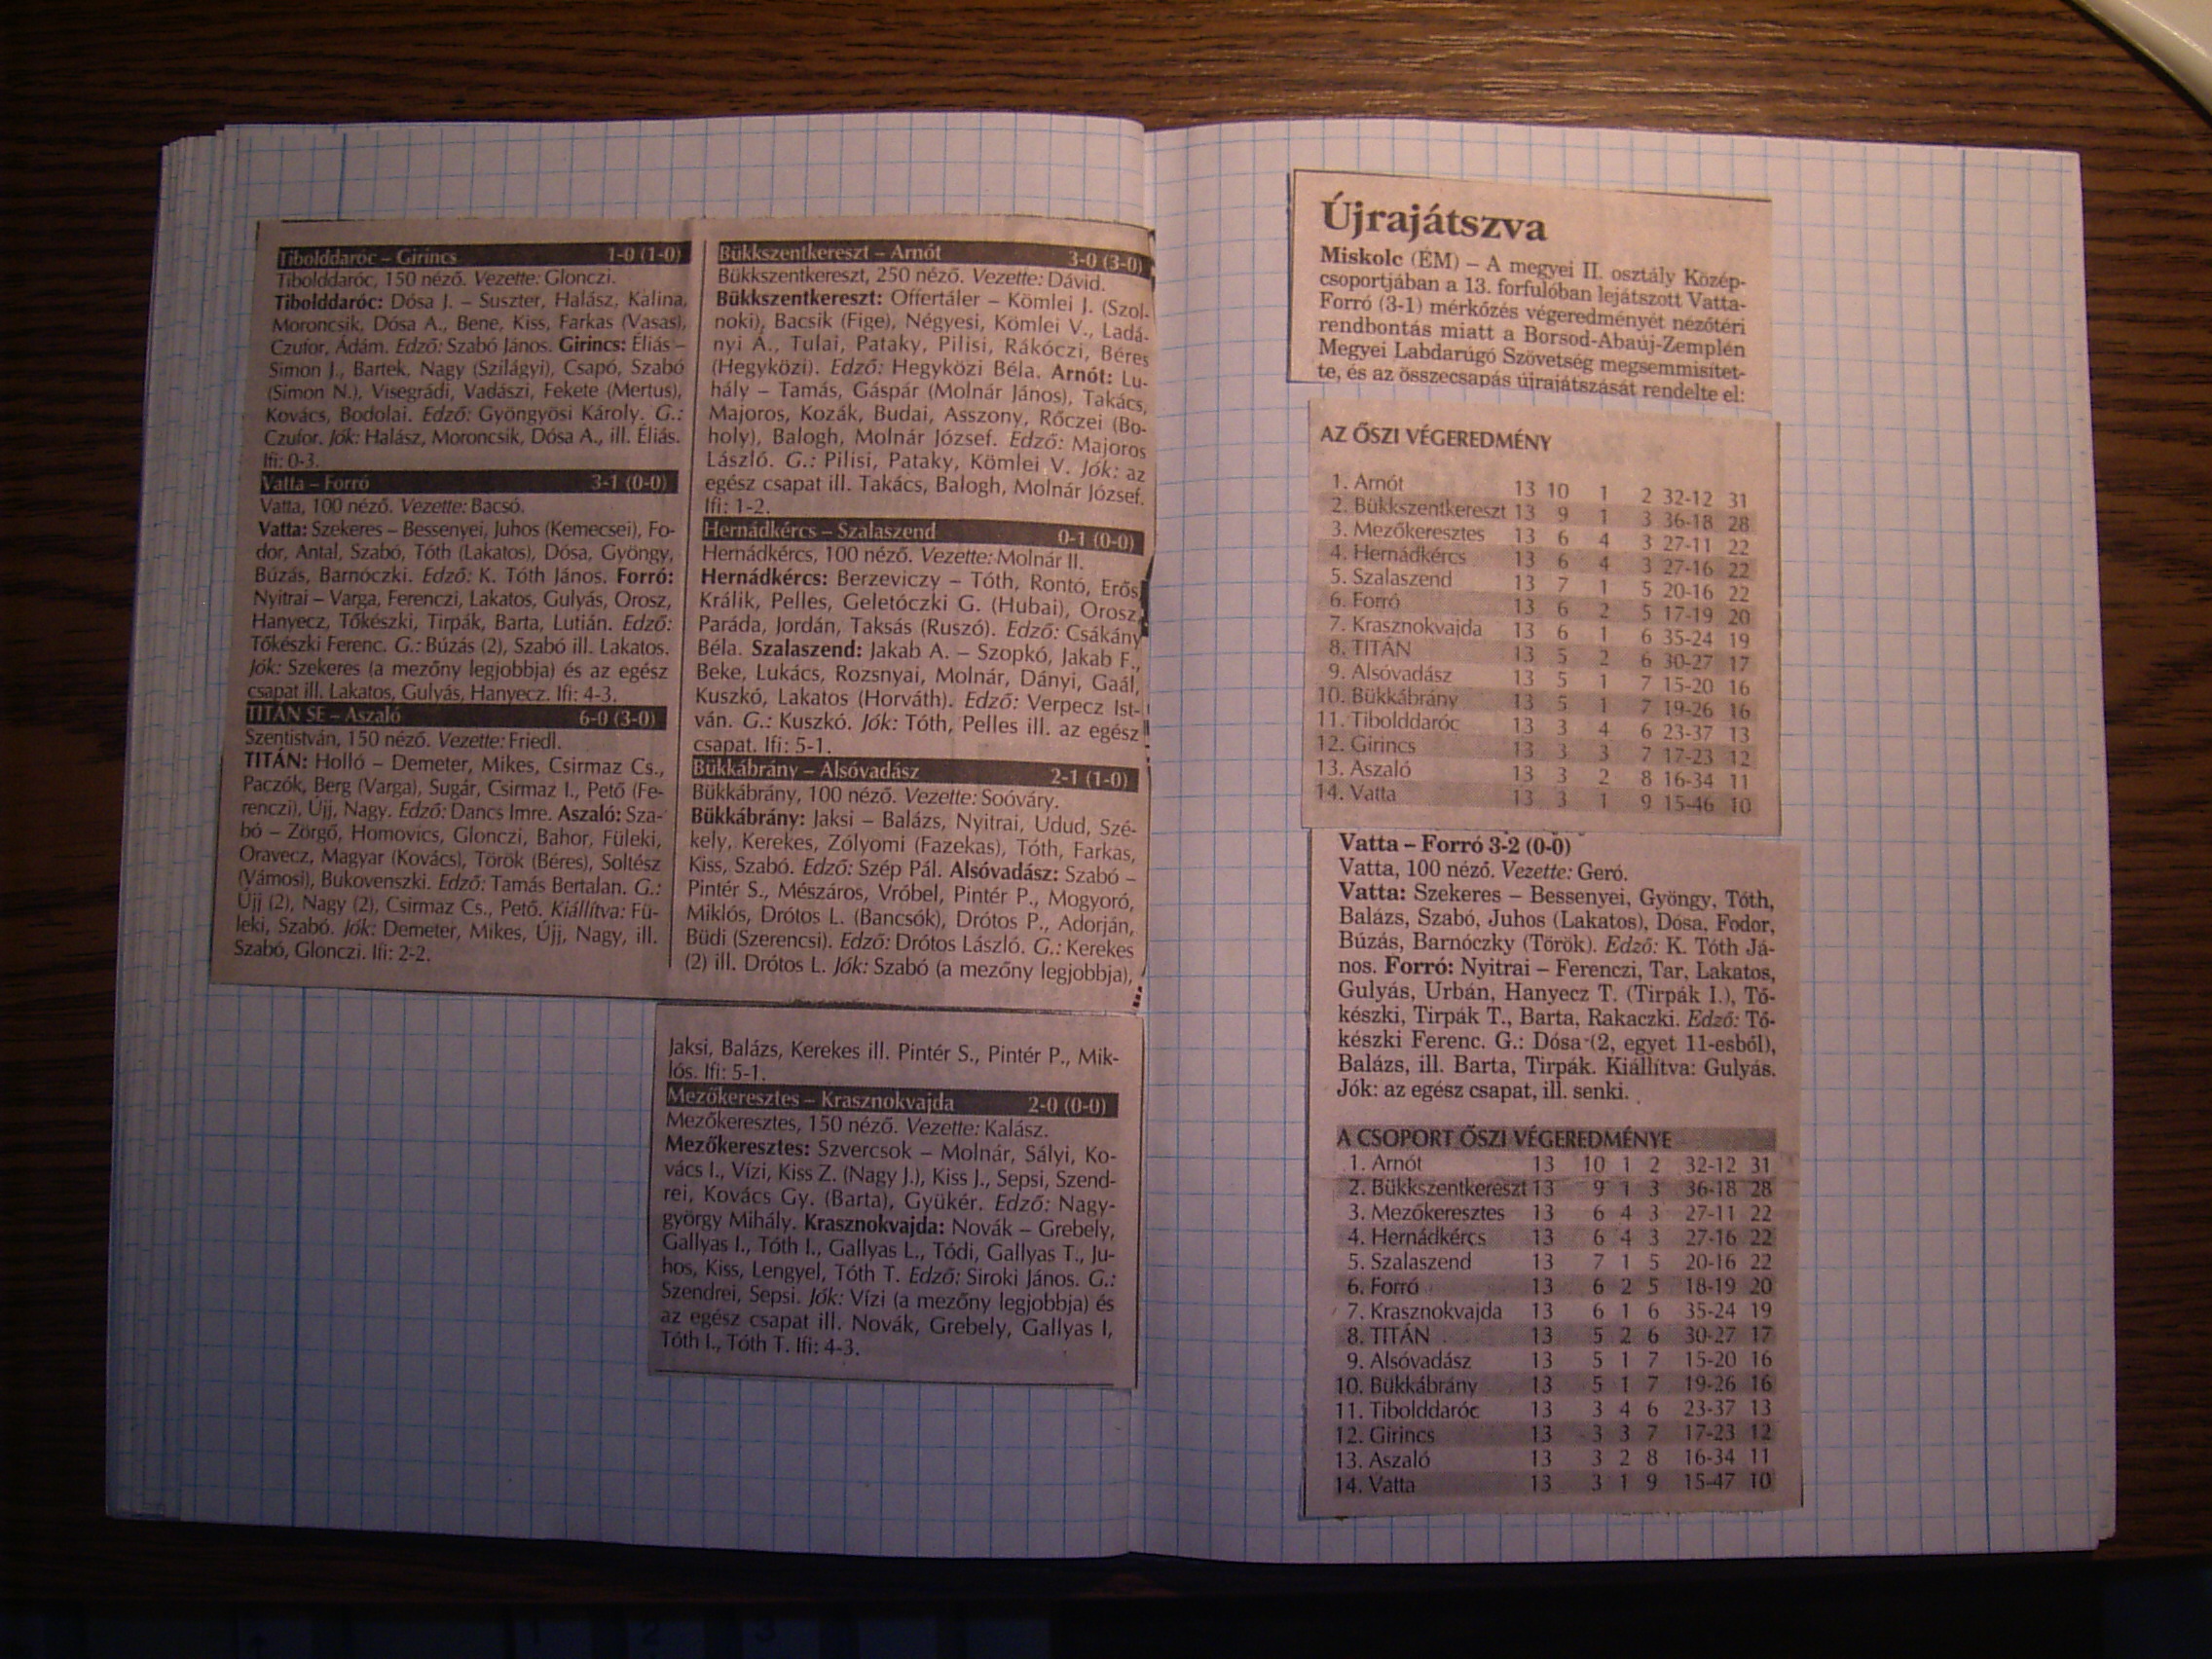 Tibolddaróc – Girincs 1-0 (1-0)
Tibolddaróc, 150 néző. Vezette: Glonczi.
Tibolddaróc: Dósa J. – Suszter, Halász, Kalina,
Moroncsik, Dósa A., Bene, Kiss, Farkas (Vasas),
Czufor, Ádám. Edző: Szabó János. Girincs: Éliás –
Simon J., Bartek, Nagy (Szilágyi), Csapó, Szabó
(Simon N.), Visegrádi, Vadászi, Fekete (Mertus),
Kovács, Bodolai. Edző: Gyöngyösi Károly. G.:
Czufor. Jók: Halász, Moroncsik, Dósa A., ill. Éliás.
Ifi: 0-3.
Vatta – Forró 3-1 (0-0)
Vatta, 100 néző. Vezette: Bacsó.
Vatta: Szekeres – Bessenyei, Juhos (Kemecsei), Fo-
dor, Antal, Szabó, Tóth (Lakatos), Dósa, Gyöngy,
Búzás, Barnóczki. Edző: K. Tóth János. Forró:
Nyitrai – Varga, Ferenczi, Lakatos, Gulyás, Orosz,
Hanyecz, Tőkészki, Tirpák, Barta, Lutián. Edző:
Tőkészki Ferenc. G.: Búzás (2), Szabó ill. Lakatos.
Jók: Szekeres (a mezőny legjobbja) és az egész
csapat ill. Lakatos, Gulyás, Hanyecz. Ifi: 4-3.
TITÁN SE – Aszaló 6-0 (3-0)
Szentistván, 150 néző. Vezette: Friedl.
TITÁN: Holló – Demeter, Mikes, Csirmaz Cs.,
Paczók, Berg (Varga), Sugár, Csirmaz I., Pető (Fe-
renczi), Újj, Nagy. Edző: Dancs Imre. Aszaló: Sza-
bó – Zörgő, Homovics, Glonczi, Bahor, Füleki,
Oravecz, Magyar (Kovács), Török (Béres), Soltész
(Vámosi), Bukovenszki. Edző: Tamás Bertalan. G.:
Újj (2), Nagy (2), Csirmaz Cs., Pető. Kiállítva: Fü-
leki, Szabó. Jók: Demeter, Mikes, Újj, Nagy, ill.
Szabó, Glonczi. Ifi: 2-2.
Bükkszentkereszt – Arnót 3-0 (3-0)
Bükkszentkereszt, 250 néző. Vezette: Dávid.
Bükkszentkereszt: Offertáler – Kömlei J. (Szol-
noki), Bacsik (Fige), Négyesi, Kömlei V., Ladá-
nyi A., Tulai, Pataky, Pilisi, Rákóczi, Béres
(Hegyközi). Edző: Hegyközi Béla. Arnót: Lu-
hály – Tamás, Gáspár (Molnár János), Takács,
Majoros, Kozák, Budai, Asszony, Rőczei (Bo-
holy), Balogh, Molnár József. Edző: Majoros
László. G.: Pilisi, Pataky, Kömlei V. Jók: az
egész csapat ill. Takács, Balogh, Molnár József.
Ifi: 1-2.
Hernádkércs – Szalaszend 0-1 (0-0)
Hernádkércs, 100 néző. Vezette: Molnár II.
Hernádkércs: Berzeviczy – Tóth, Rontó, Erős
Králik, Pelles, Geletóczki G. (Hubai), Orosz,
Paráda, Jordán, Taksás (Ruszó). Edző: Csákány
Béla. Szalaszend: Jakab A. – Szopkó, Jakab F.,
Beke, Lukács, Rozsnyai, Molnár, Dányi, Gaál,
Kuszkó, Lakatos (Horváth). Edző: Verpecz Ist-
ván. G.: Kuszkó. Jók: Tóth, Pelles ill. az egész
csapat. Ifi: 5-1.
Bükkábrány – Alsóvadász 2-1 (1-0)
Bükkábrány, 100 néző. Vezette: Soóváry.
Bükkábrány: Jaksi – Balázs, Nyitrai, Udud, Szé-
kely, Kerekes, Zólyomi (Fazekas), Tóth, Farkas,
Kiss, Szabó. Edző: Szép Pál. Alsóvadász: Szabó –
Pintér S., Mészáros, Vróbel, Pintér P., Mogyoró,
Miklós, Drótos L. (Bancsók), Drótos P., Adorján,
Büdi (Szerencsi). Edző: Drótos László. G.: Kerekes
(2) ill. Drótos L. Jók: Szabó (a mezőny legjobbja),
Jaksi, Balázs, Kerekes ill. Pintér S., Pintér P., Mik-
lós. Ifi: 5-1.
Mezőkeresztes – Krasznokvajda 2-0 (0-0)
Mezőkeresztes, 150 néző. Vezette: Kalász.
Mezőkeresztes: Szvercsok – Molnár, Sályi, Ko-
vács I., Vízi, Kiss Z. (Nagy J.), Kiss J., Sepsi, Szend-
rei, Kovács Gy. (Barta), Gyükér. Edző: Nagy-
györgy Mihály. Krasznokvajda: Novák – Grebely,
Gallyas I., Tóth I., Gallyas L., Tódi, Gallyas T., Ju-
hos, Kiss, Lengyel, Tóth T. Edző: Siroki János. G.:
Szendrei, Sepsi. Jók: Vízi (a mezőny legjobbja) és
az egész csapat ill. Novák, Grebely, Gallyas I,
Tóth I., Tóth T. Ifi: 4-3.
Újrajátszva
Miskolc (ÉM) – A megyei II. osztály Közép-
csoportjában a 13. forfulóban lejátszott Vatta-
Forró (3-1) mérkőzés végeredményét nézőtéri
rendbontás miatt a Borsod-Abaúj-Zemplén
Megyei Labdarúgó Szövetség megsemmisítet-
te, és az összecsapás újrajátszását rendelte el:
AZ ŐSZI VÉGEREDMÉNY
1. Arnót 13 10 1 2 32-12 31
2. Bükkszentkereszt 13 9 1 3 36-18 28
3. Mezőkeresztes 13 6 4 3 27-11 22
4. Hernádkércs 13 6 4 3 27-16 22
5. Szalaszend 13 7 1 5 20-16 22
6. Forró 13 6 2 5 17-19 20
7. Krasznokvajda 13 6 1 6 35-24 19
8. TITÁN 13 5 2 6 30-27 17
9. Alsóvadász 13 5 1 7 15-20 16
10. Bükkábrány 13 5 1 7 19-26 16
11. Tibolddaróc 13 3 4 6 23-37 13
12. Girincs 13 3 3 7 17-23 12
13. Aszaló 13 3 2 8 16-34 11
14. Vatta 13 3 1 9 15-46 10
Vatta – Forró 3-2 (0-0)
Vatta, 100 néző. Vezette: Geró.
Vatta: Szekeres – Bessenyei, Gyöngy, Tóth,
Balázs, Szabó, Juhos (Lakatos), Dósa, Fodor,
Búzás, Barnóczky (Török). Edző: K. Tóth Já-
nos. Forró: Nyitrai – Ferenczi, Tar, Lakatos,
Gulyás, Urbán, Hanyecz T. (Tirpák I.), Tő-
készki, Tirpák T., Barta, Rakaczki. Edző: Tő-
készki Ferenc. G.: Dósa (2, egyet 11-esből),
Balázs, ill. Barta, Tirpák. Kiállítva: Gulyás.
Jók: az egész csapat, ill. senki.
A CSOPORT ŐSZI VÉGEREDMÉNYE
1. Arnót 13 10 1 2 32-12 31
2. Bükkszentkereszt 13 9 1 3 36-18 28
3. Mezőkeresztes 13 6 4 3 27-11 22
4. Hernádkércs 13 6 4 3 27-16 22
5. Szalaszend 13 7 1 5 20-16 22
6. Forró 13 6 2 5 18-19 20
7. Krasznokvajda 13 6 1 6 35-24 19
8. TITÁN 13 5 2 6 30-27 17
9. Alsóvadász 13 5 1 7 15-20 16
10. Bükkábrány 13 5 1 7 19-26 16
11. Tibolddaróc 13 3 4 6 23-37 13
12. Girincs 13 3 3 7 17-23 12
13. Aszaló 13 3 2 8 16-34 11
14. Vatta 13 3 1 9 15-47 10